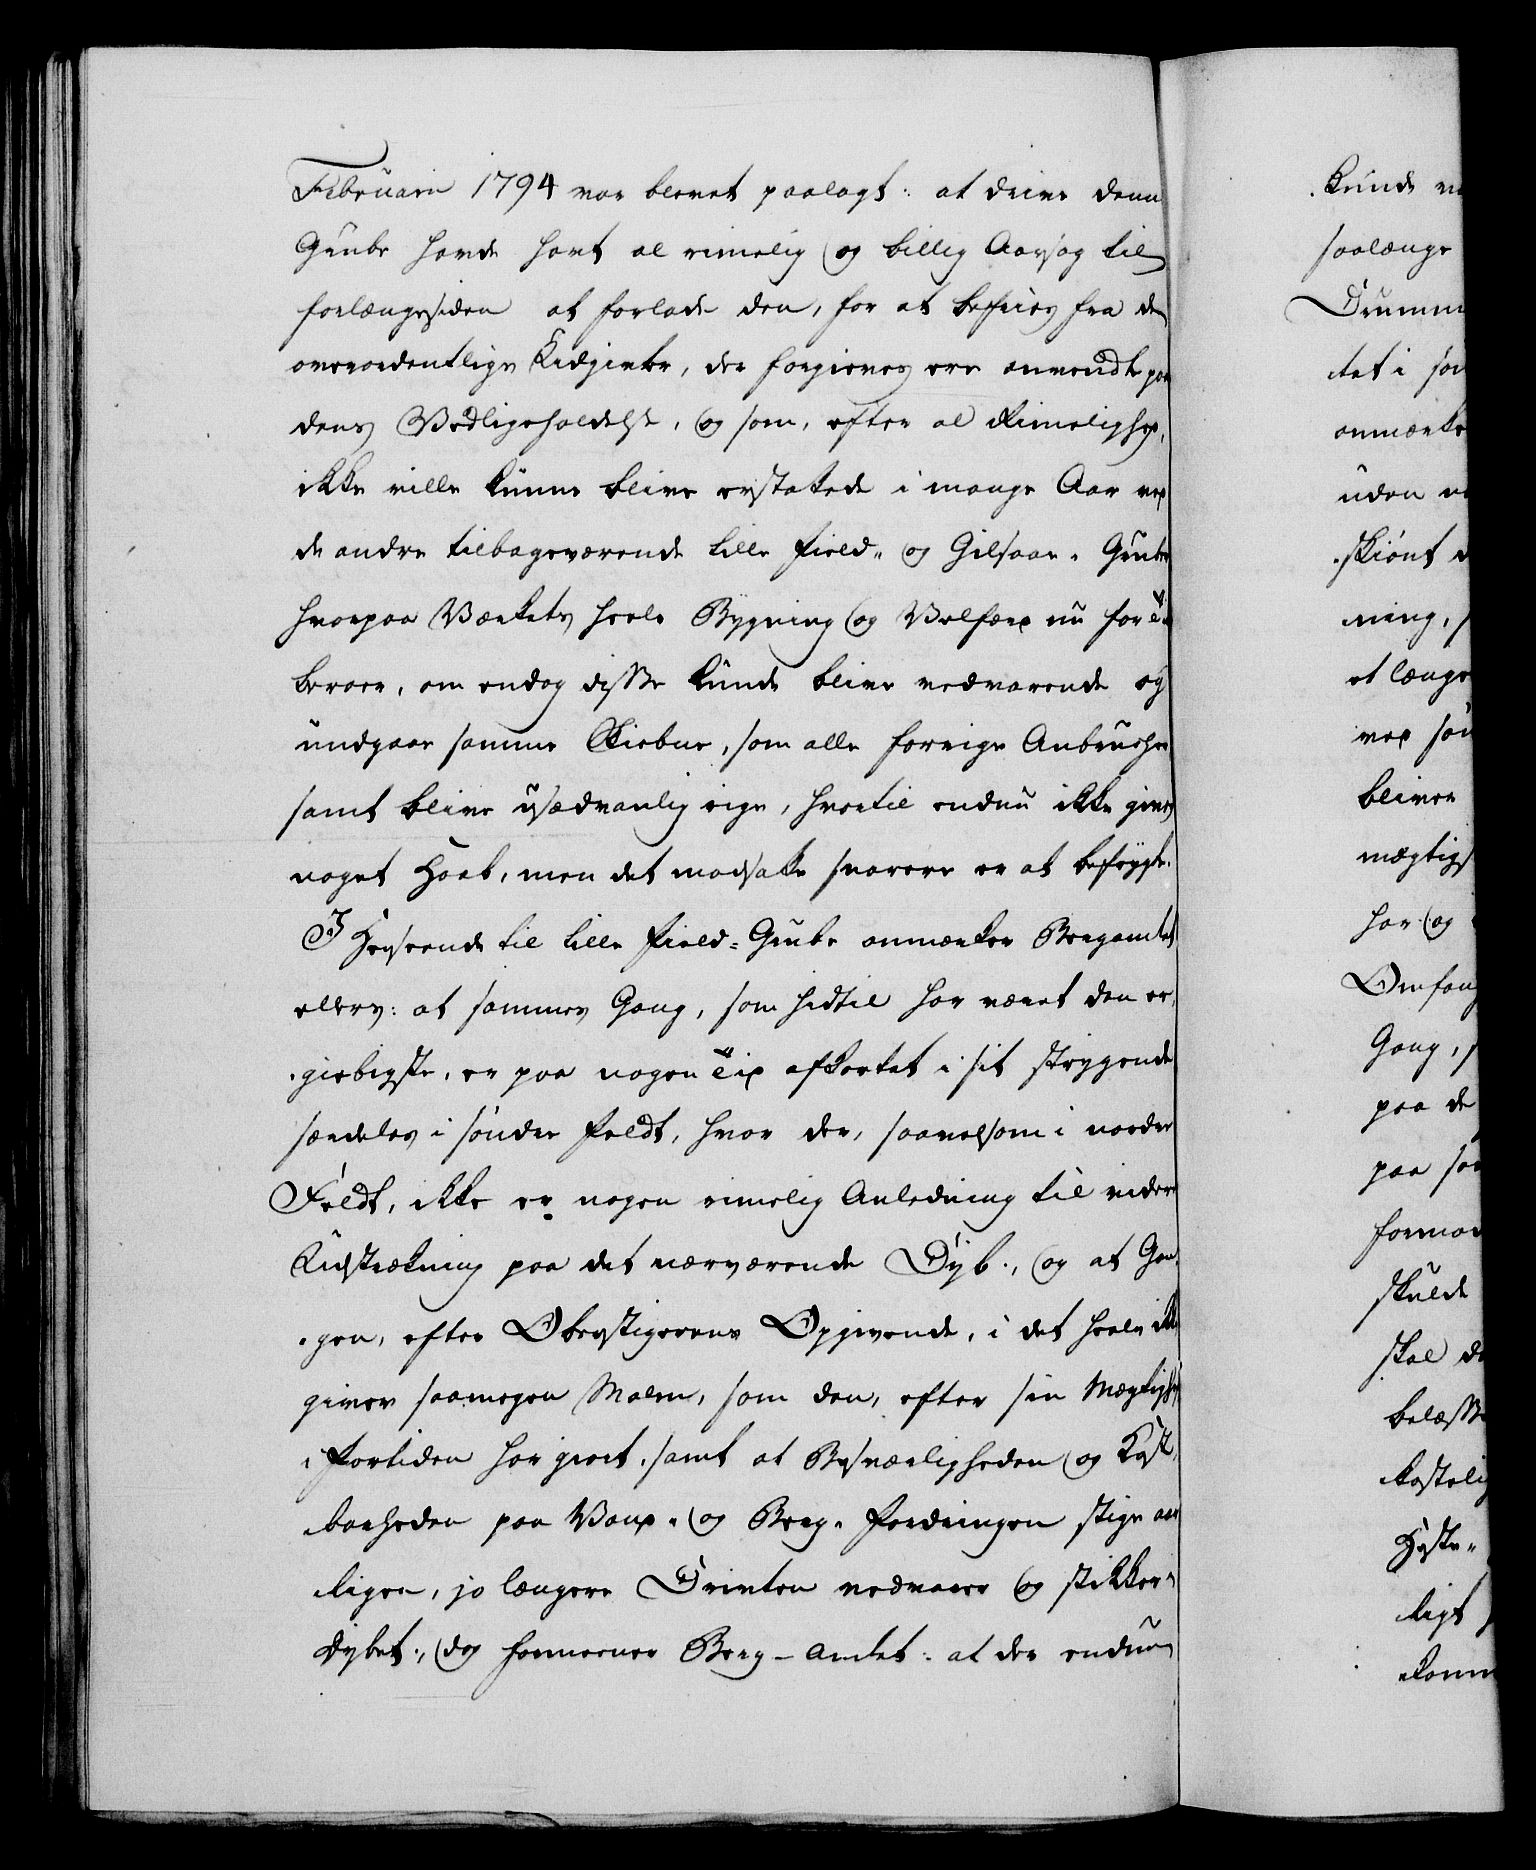 Februarii 1794 var blevet paalagt: at drive denne
Grube havde havt al rimelig og billig Aarsag til
forlængesiden at forlade den, for at befries fra de
overordentlige Udgivter, der forgieves ere anvendte paa
dens Vedligeholdelse, og som, efter al Rimelighed,
ikke ville kunne blive erstattede i mange Aar ved
de andre tilbageværende lille Field- og Gilsaae- Gruber
hvorpaa Værkets heele Bygning og Velfærd nu for Tiden
beroer, om endog disse kunde blive vedvarende og
undgaae samme Skiebne, som alle forrige Anbrücher
samt blive usædvanlig rige, hvortil endnu ikke gives
noget Haab, men det modsatte snarere er at befrygte.
I Henseende til lille Field-Grube anmærker Bergamtet
ellers: at sammes Gang, som hidtil har været den er-
giebigste, er paa nogen Tid afkortet i sit strygende
særdeles i sønder Feldt, hvor der, saavelsom i norder
Feldt, ikke er nogen rimelig Anledning til videre
Udstrækning paa det nærværende Dyb, og at Gan-
gen, efter Oberstigerens Opgivende, i det heele ikke
giver saamegen Malm, som den, efter sin Mægtighed,
i Fortiden har giort, samt at Besværligheden og Kost-
barheden paa Vand- og Berg-Fordringen stige aar-
ligen, jo længere Drivten vedvarer og stikker i
Dybet, dog formeener Berg-Amtet: at der endnu
Kunde
saalænge
Drumm
tet i
anmærke
uden
skiønt
ning,
et længe
ved
bliver
mægtig
har og
Omfang
Gang,
paa de
paa
formod
skulde
skal
belæsse
kostelig
Heste-
ligt
komm